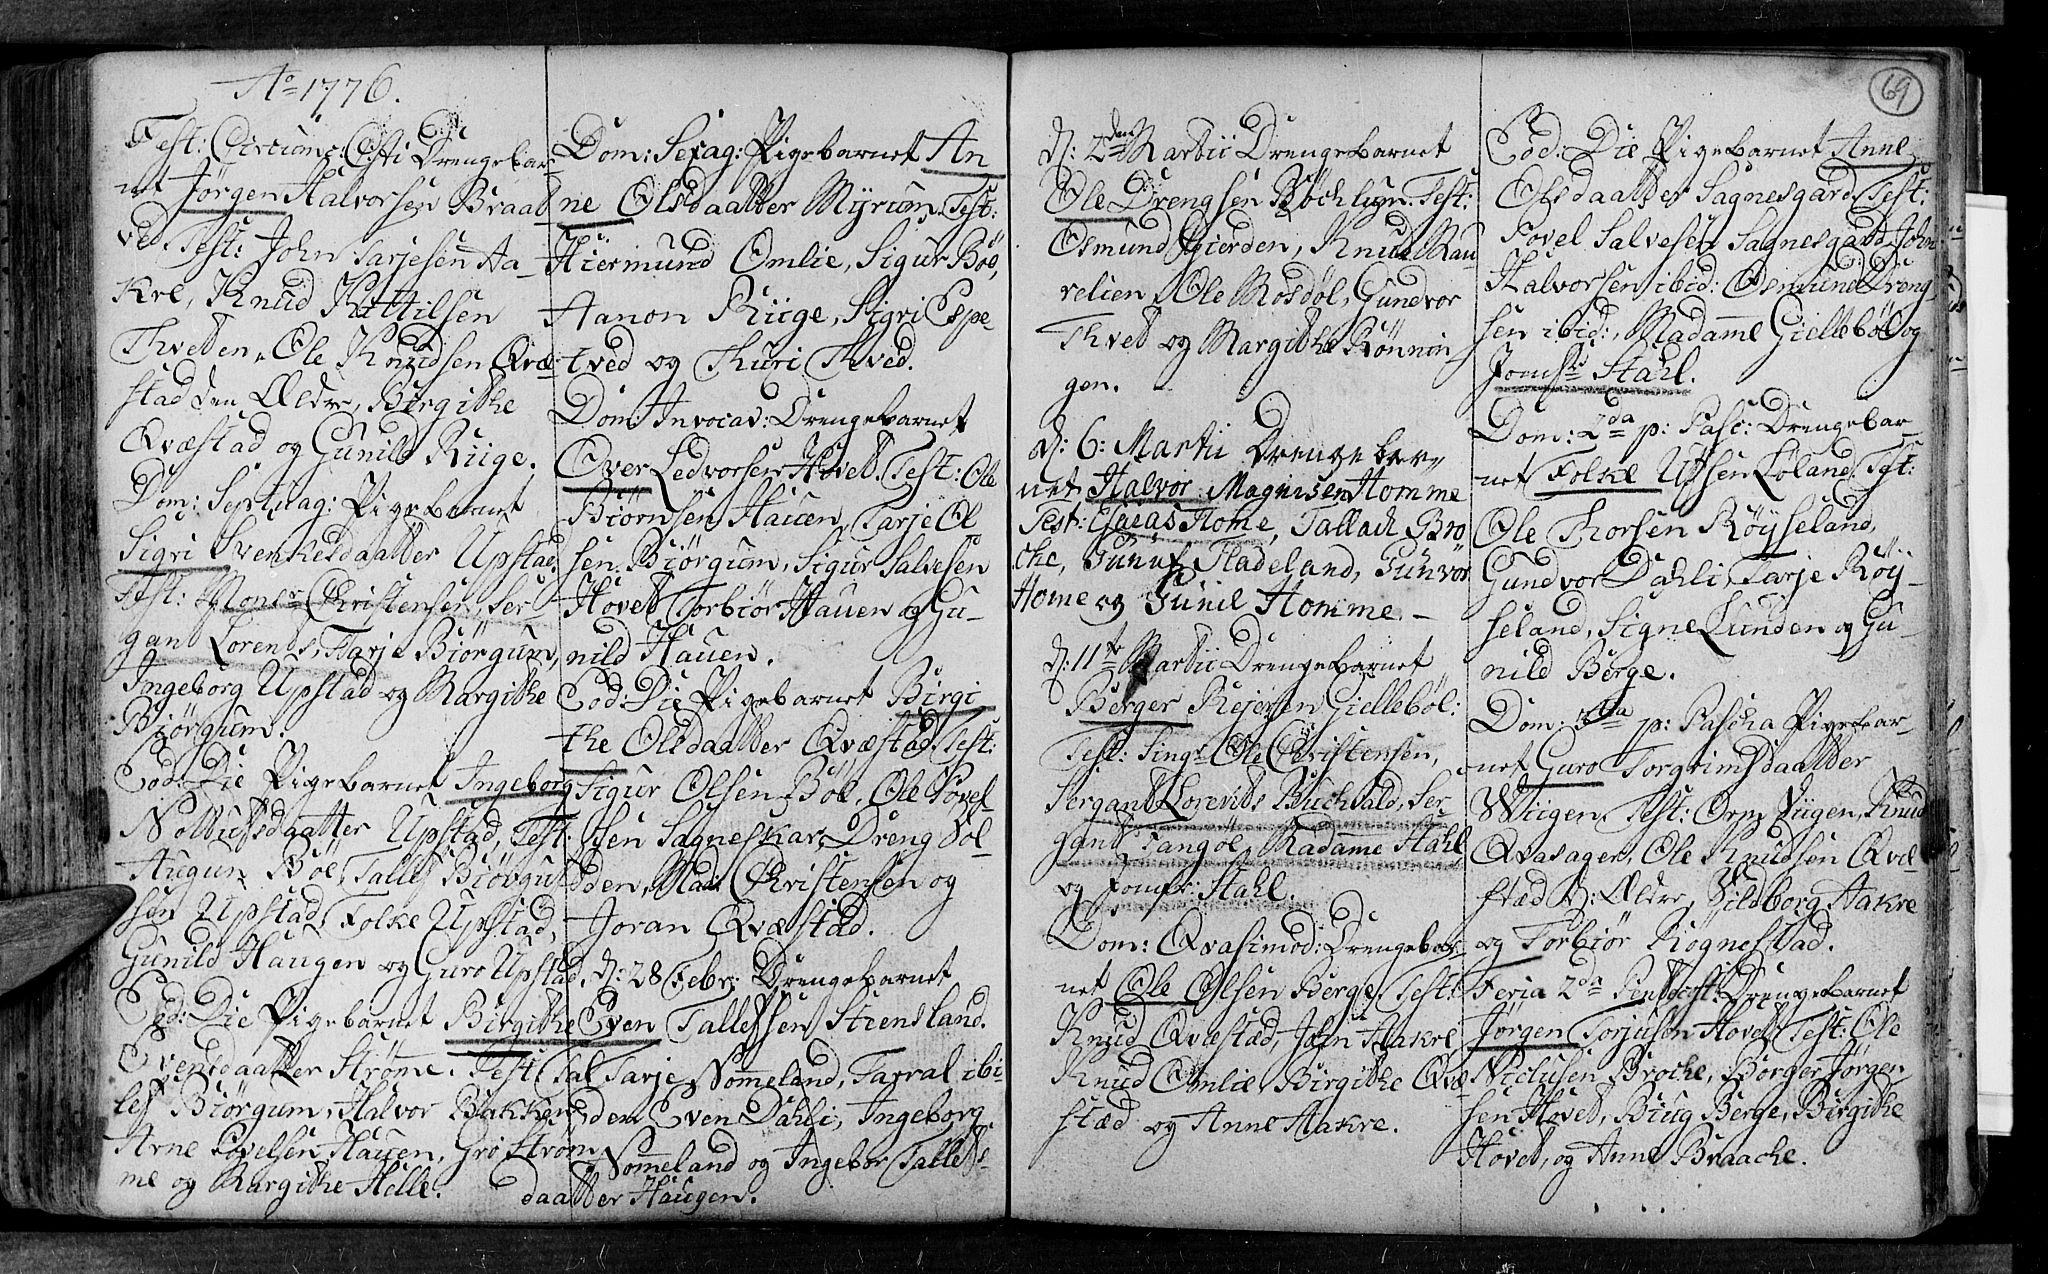 Aº 1776.
Fest: Circumc: Xsti Drengebar-
net Jørgen Halvorsen Braat
ved Test: John Tarjesen Aa-
kre, Knud Kittilsen
Thvedten, Ole Knudsen Qvæ-
stad den Ældre, Birgithe
Qvæstad og Gunild Riige.
Dom: Septuag: Pigebarnet
Sigri Svenkesdaatter Upstad
Test: Monsr Christensen, Ser-
gan Lorents, Tarje Biørgum,
Ingeborg Upstad og Margithe
Biørgum.
Eod: Die Pigebarnet Ingeborg
Notlufsdaatter Upstad, Test:
Augun Böe, Tallef Biørgul
sen Upstad, Folke Upstad,
Gunild Haugen og Guro Upstad.
Eod: Die Pigebarnet Birgithe
Evensdaatter Strøme. Test: Tal
lef Biørgum, Halvor Bakken
Arne Povelsen Hauen, Gro Strøm
me og Margithe Helle.
Dom: Sexag: Pigebarnet An
ne Olsdaatter Myrum, Test:
Hiermund Omlie, Sigur Böe,
Aanon Riige, Sigri Espe
tved og Thuri Tved.
Dom: Invocav: Drengebarnet
Over Ledvorsen Hovet. Test: Ole
Biørnsen Hauen, Tarje Ol
sen Biørgum, Sigur Salvesen
Hovet Torbiør Hauen og Gu-
nild Hauen.
Eod: Die Pigebarnet Birgi
the Olsdaatter Qvæstad. Test:
Sigur Olsen Böe, Ole Povel
sen Sagneskar, Dreng Dol-
den, Mad: Christensen og
Joran Qvæstad.
d: 28 Febr: Drengebarnet
Even Tallefsen Stensland.
Tarje Nommeland, Tarral ibi-
dem Even Dahli, Ingeborg
Nommeland og Ingebor Tallefs-
daatter Haugen.
69
d: 2den Martii Drengebarnet
Ole Drengsen Böchlun. Test:
Osmund Gierden, Knud Rau
velien, Ole Rosdøl, Gundvor
Thvet og Margithe Rønnin
gen.
d: 6: Martii Drengebar,,
net Halvor Magnisen Homme
Test: Esaias Home, Tallach Bro
che, Gunuf Fladeland, Gunvor
Home og Gunil Homme.-
d: 11te Martii Drengebarnet
Berger Rejersen Giellebøl:
Test: Singr Ole Christensen,
Sergant Lorents Buchvald, Ser-
gant Tangöl, Madamme Stahl
og Jomfr: Stahl.
Dom: Qvasimod: Drengebar
net Ole Olsen Berge. Test:
Knud Qvæstad, John Aakre
Knud Omlie, Birgithe Qvæ
stæd og Anne Aakre.
Eod: Die Pigebarnet Anne
Olsdaatter Sagnesgard. Test:
Povel Salvesen Sagnesgard, John
Halvorsen ibid: Osmund Dreng-
sen ibid:, Madamme Giellebøl og
Jomfr Stahl.
Dom: 2da p: Pasc: Drengebar
net Folke Ufsen Löland. Tst:
Ole Thorsen Röyseland,
Gundvor Dahli, Tarje Röy-
seland, Signe Lunden og Gu-
nild Berge.
Dom: 3tia p: Pascha Pigebar-
net Guro Torgrimsdaatter
Wiigen. Test: Orm Viigen, Knud
Qvasager, Ole Knudsen Qvæ
stad d: Ældre, Vildborg Aakre
og Torbiør Rognestad.
Feria 2da Pentecost: Drengebarnet
Jørgen Torjusen Hovet. Test: Ole
Niclusen Broche, Börger Jørgen
sen Hovet, Biug Berge, Birgithe
Hovet, og Anne Braache.